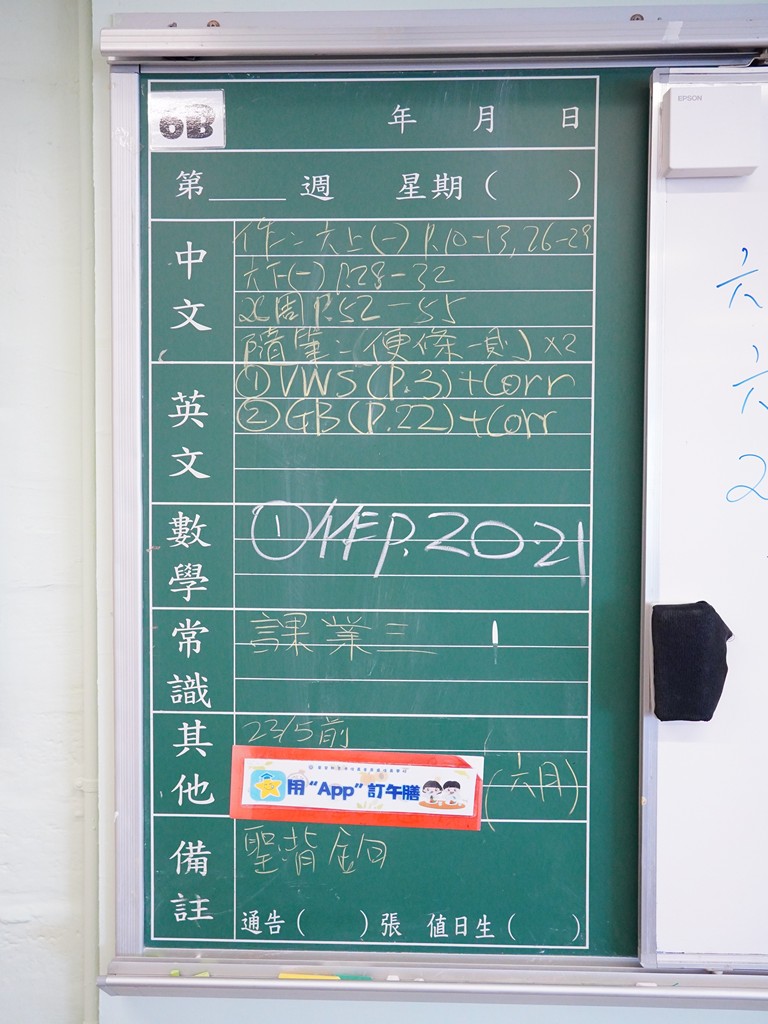 6B
年 月 日
第 週 星期( )
EPSON
中文
作：六上(一) P.10-13, 26-29
六下(一) P.28-32
P.52-55
隨筆：便條一則 x2
英文
① VWS (P.3) + Corr
② GB (P.22) + Corr
數學
① P.20-21
常識
課業三
其他
23/5前
用“App”訂午膳
(六月)
備註
通告( )張 值日生( )
六
六
2